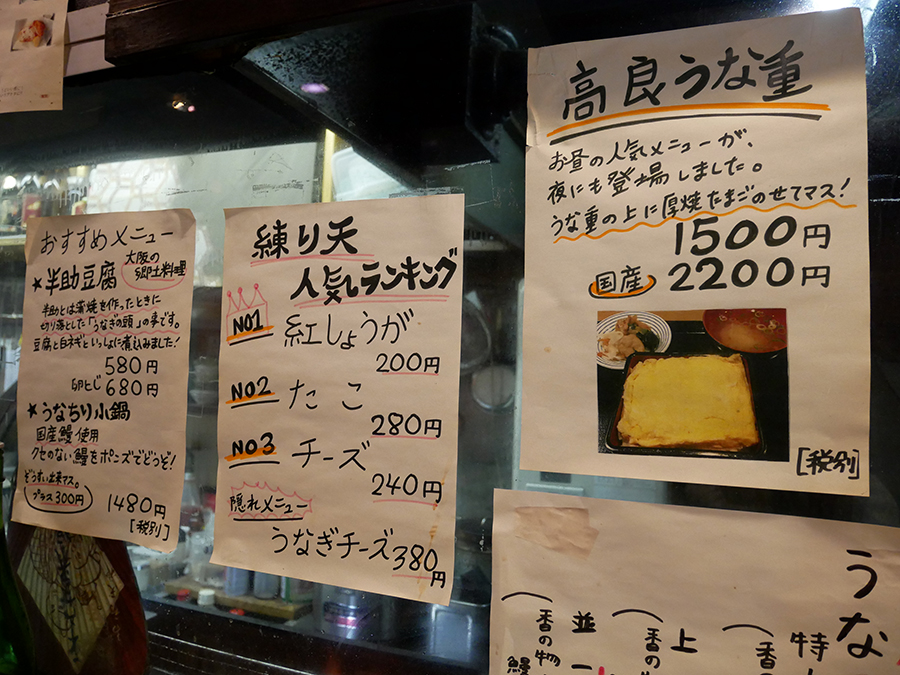 おすすめメニュー
★半助豆腐
大阪の
郷土料理
半助とは蒲焼を作ったときに
切り落とした「うなぎの頭」の事です。
豆腐と白ネギといっしょに煮込みました!
580円
卵とじ680円
★うなちり小鍋
国産鰻使用
クセのない鰻をポニズでどうぞ!
ぞうすい出来マス。
プラス300円
1480円
[税別]
練り天
人気ランキング
NO1 紅しょうが
200円
NO2 たこ
280円
NO3 チーズ
240円
隠れメニュー
うなぎチーズ380円
高良うな重
お昼の人気メニューが、
夜にも登場しました。
うな重の上に厚焼たまごのせてマス!
1500円
国産 2200円
[税別]
うな
特
(香
上
(香の
並一
(香の物
鰻